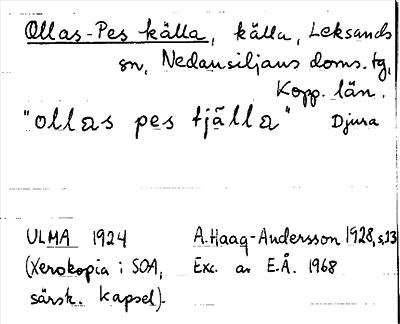 Ollas-Pes källa, källa, Leksands
sn, Nedansiljans doms. tg,
Kopp. län.
"ollas pes tjälla" Djura
ULMA 1924 A. Haag-Andersson 1928, s.13
(Xerokopia i SOA, Exc. av E.Å. 1968
särsk. kapsel).